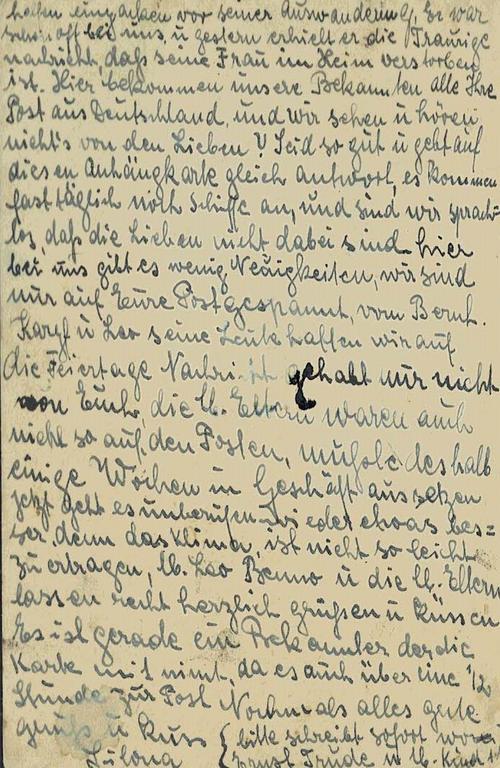 helfen einpacken vor seiner Auswanderung. Er war
schon oft bei uns u gestern erhielt er die Traurige
nachricht, daß seine Frau im Heim verstorben
ist. Hier bekommen unsere Bekannten alle Ihre
Post aus Deutschland, und wir sehen u hören
nicht's von den Lieben! Seid so gut u gebt auf
diesen Anhängkarte gleich antwort, es kommen
fast täglich noch Schiffe an, und sind wir sprach=
los, daß die Lieben nicht dabei sind. hier
bei uns gibt es wenig Neuigkeiten, wir sind
nur auf Eure Post gespannt, vom Bernh.
u Leo seine Leute hatten wir auf
die Feiertage Nachricht gehabt nur nicht
von Euch, die lb. Eltern waren auch
nicht so auf den Posten, mußte deshalb
einige Wochen im Geschäft aussetzen
jetzt geht es unberufen wieder etwas bes=
ser. denn das Klima, ist nicht so leicht
zu ertragen, lb. Leo Benno u die lb. Eltern
lassen recht herzlich grüßen u küssen
Es ist gerade ein Bekannter der die
Karte mit nimt, da es auch über eine 1/2
Stunde zur Post Nochmals alles gute
gruß u Kuss { bitte schreibt sofort
Ernst Trude u lb. Kind